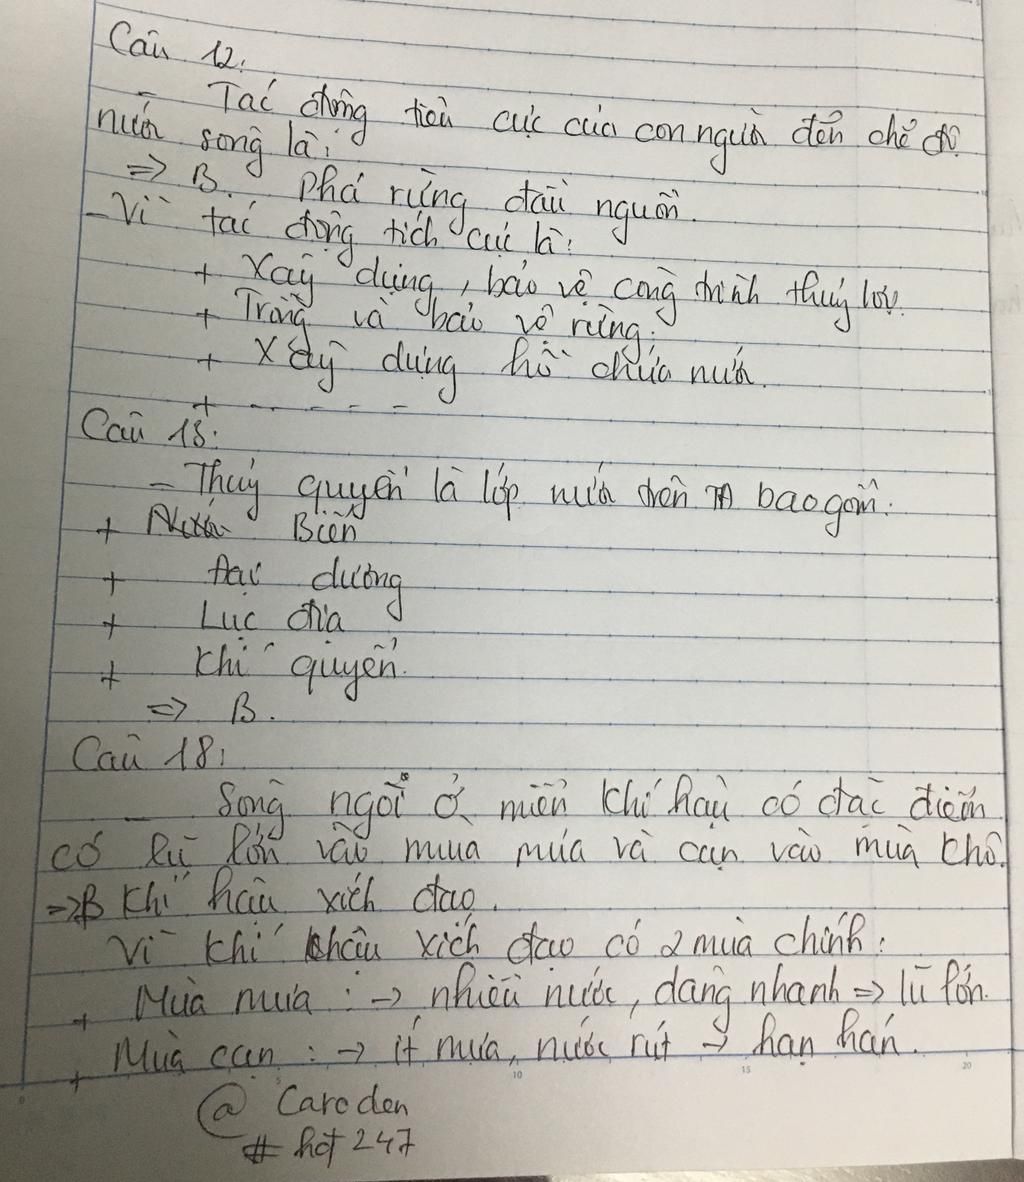 Câu 12:
- Tác động tiêu cực của con người đến chế độ
nước sông là:
=> B. Phá rừng đầu nguồn.
- Vì tác động tích cực là:
+ Xây dựng, bảo vệ công trình thuỷ lợi.
+ Trồng và bảo vệ rừng.
+ Xây dựng hồ chứa nước.
+ - - - - -
Câu 15:
- Thuỷ quyển là lớp nước trên TĐ bao gồm:
+ Biển
+ Đại dương
+ Lục địa
+ Khí quyển.
=> B.
Câu 18:
- Sông ngòi ở miền khí hậu có đặc điểm
có lũ lớn vào mùa mưa và cạn vào mùa khô.
=> B Khí hậu xích đạo.
Vì khí hậu xích đạo có 2 mùa chính:
+ Mùa mưa : -> nhiều nước, dâng nhanh => lũ lớn.
+ Mùa cạn : -> ít mưa, nước rút -> hạn hán.
5 10 15 20
@ Caroden
# hqt247